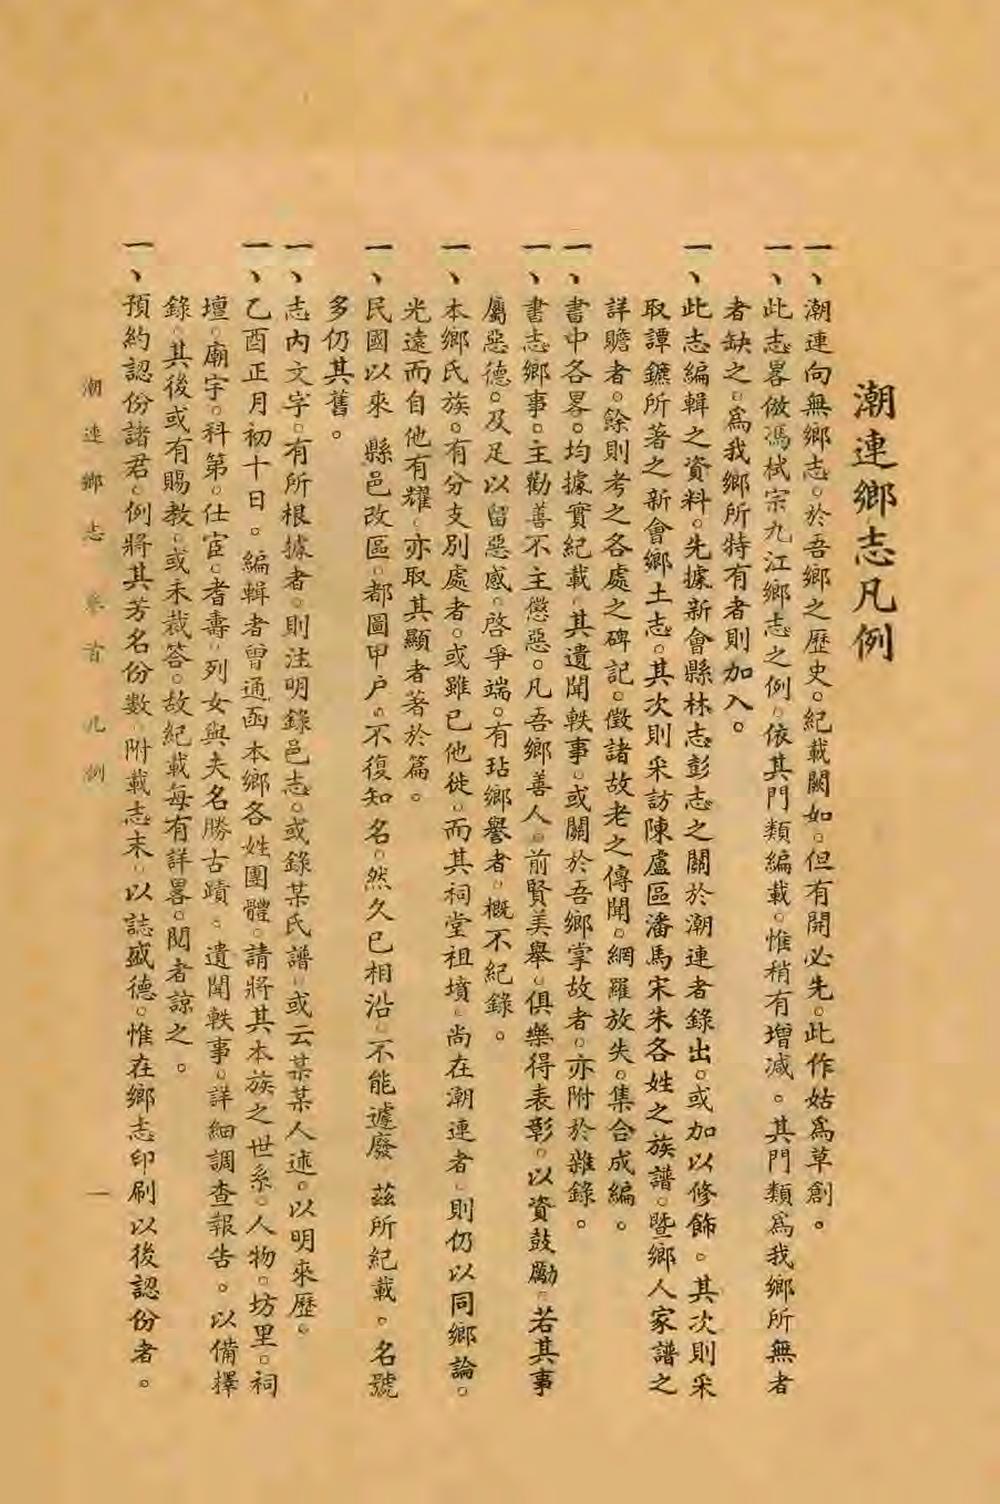 潮連鄉志凡例
一、潮連向無鄉志。於吾鄉之歷史。紀載闕如。但有開必先。此作姑爲草創。
一、此志畧倣馮栻宗九江鄉志之例。依其門類編載。惟稍有增減。其門類爲我鄉所無者
者缺之。爲我鄉所特有者則加入。
一、此志編輯之資料。先據新會縣林志彭志之關於潮連者錄出。或加以修飾。其次則采
取譚鑣所著之新會鄉土志。其次則采訪陳盧區潘馬宋朱各姓之族譜。曁鄉人家譜之
詳贍者。餘則考之各處之碑記。徵諸故老之傳聞。網羅放失。集合成編。
一、書中各畧。均據實紀載。其遺聞軼事。或關於吾鄉掌故者。亦附於雜錄。
一、書志鄉事。主勸善不主懲惡。凡吾鄉善人。前賢美舉。俱樂得表彰。以資鼓勵。若其事
屬惡德。及足以留惡感。啓爭端。有玷鄉譽者。概不紀錄。
一、本鄉氏族。有分支別處者。或雖已他徙。而其祠堂祖墳。尚在潮連者。則仍以同鄉論。
光遠而自他有耀。亦取其顯者著於篇。
一、民國以來 縣邑改區。都圖甲戶。不復知名。然久已相沿。不能遽廢 茲所紀載。名號
多仍其舊。
一、志內文字。有所根據者。則注明錄邑志。或錄某氏譜。或云某某人述。以明來歷。
一、乙酉正月初十日。編輯者曾通函本鄉各姓團體。請將其本族之世系。人物。坊里。祠
壇。廟宇。科第。仕宦。耆壽。列女與夫名勝古蹟。遺聞軼事。詳細調查報告。以備擇
錄。其後或有賜教。或未裁答。故紀載每有詳畧。閱者諒之。
一、預約認份諸君。例將其芳名份數。附載志末。以誌盛德。惟在鄉志印刷以後認份者。
潮連鄉志 卷首 凡例 一